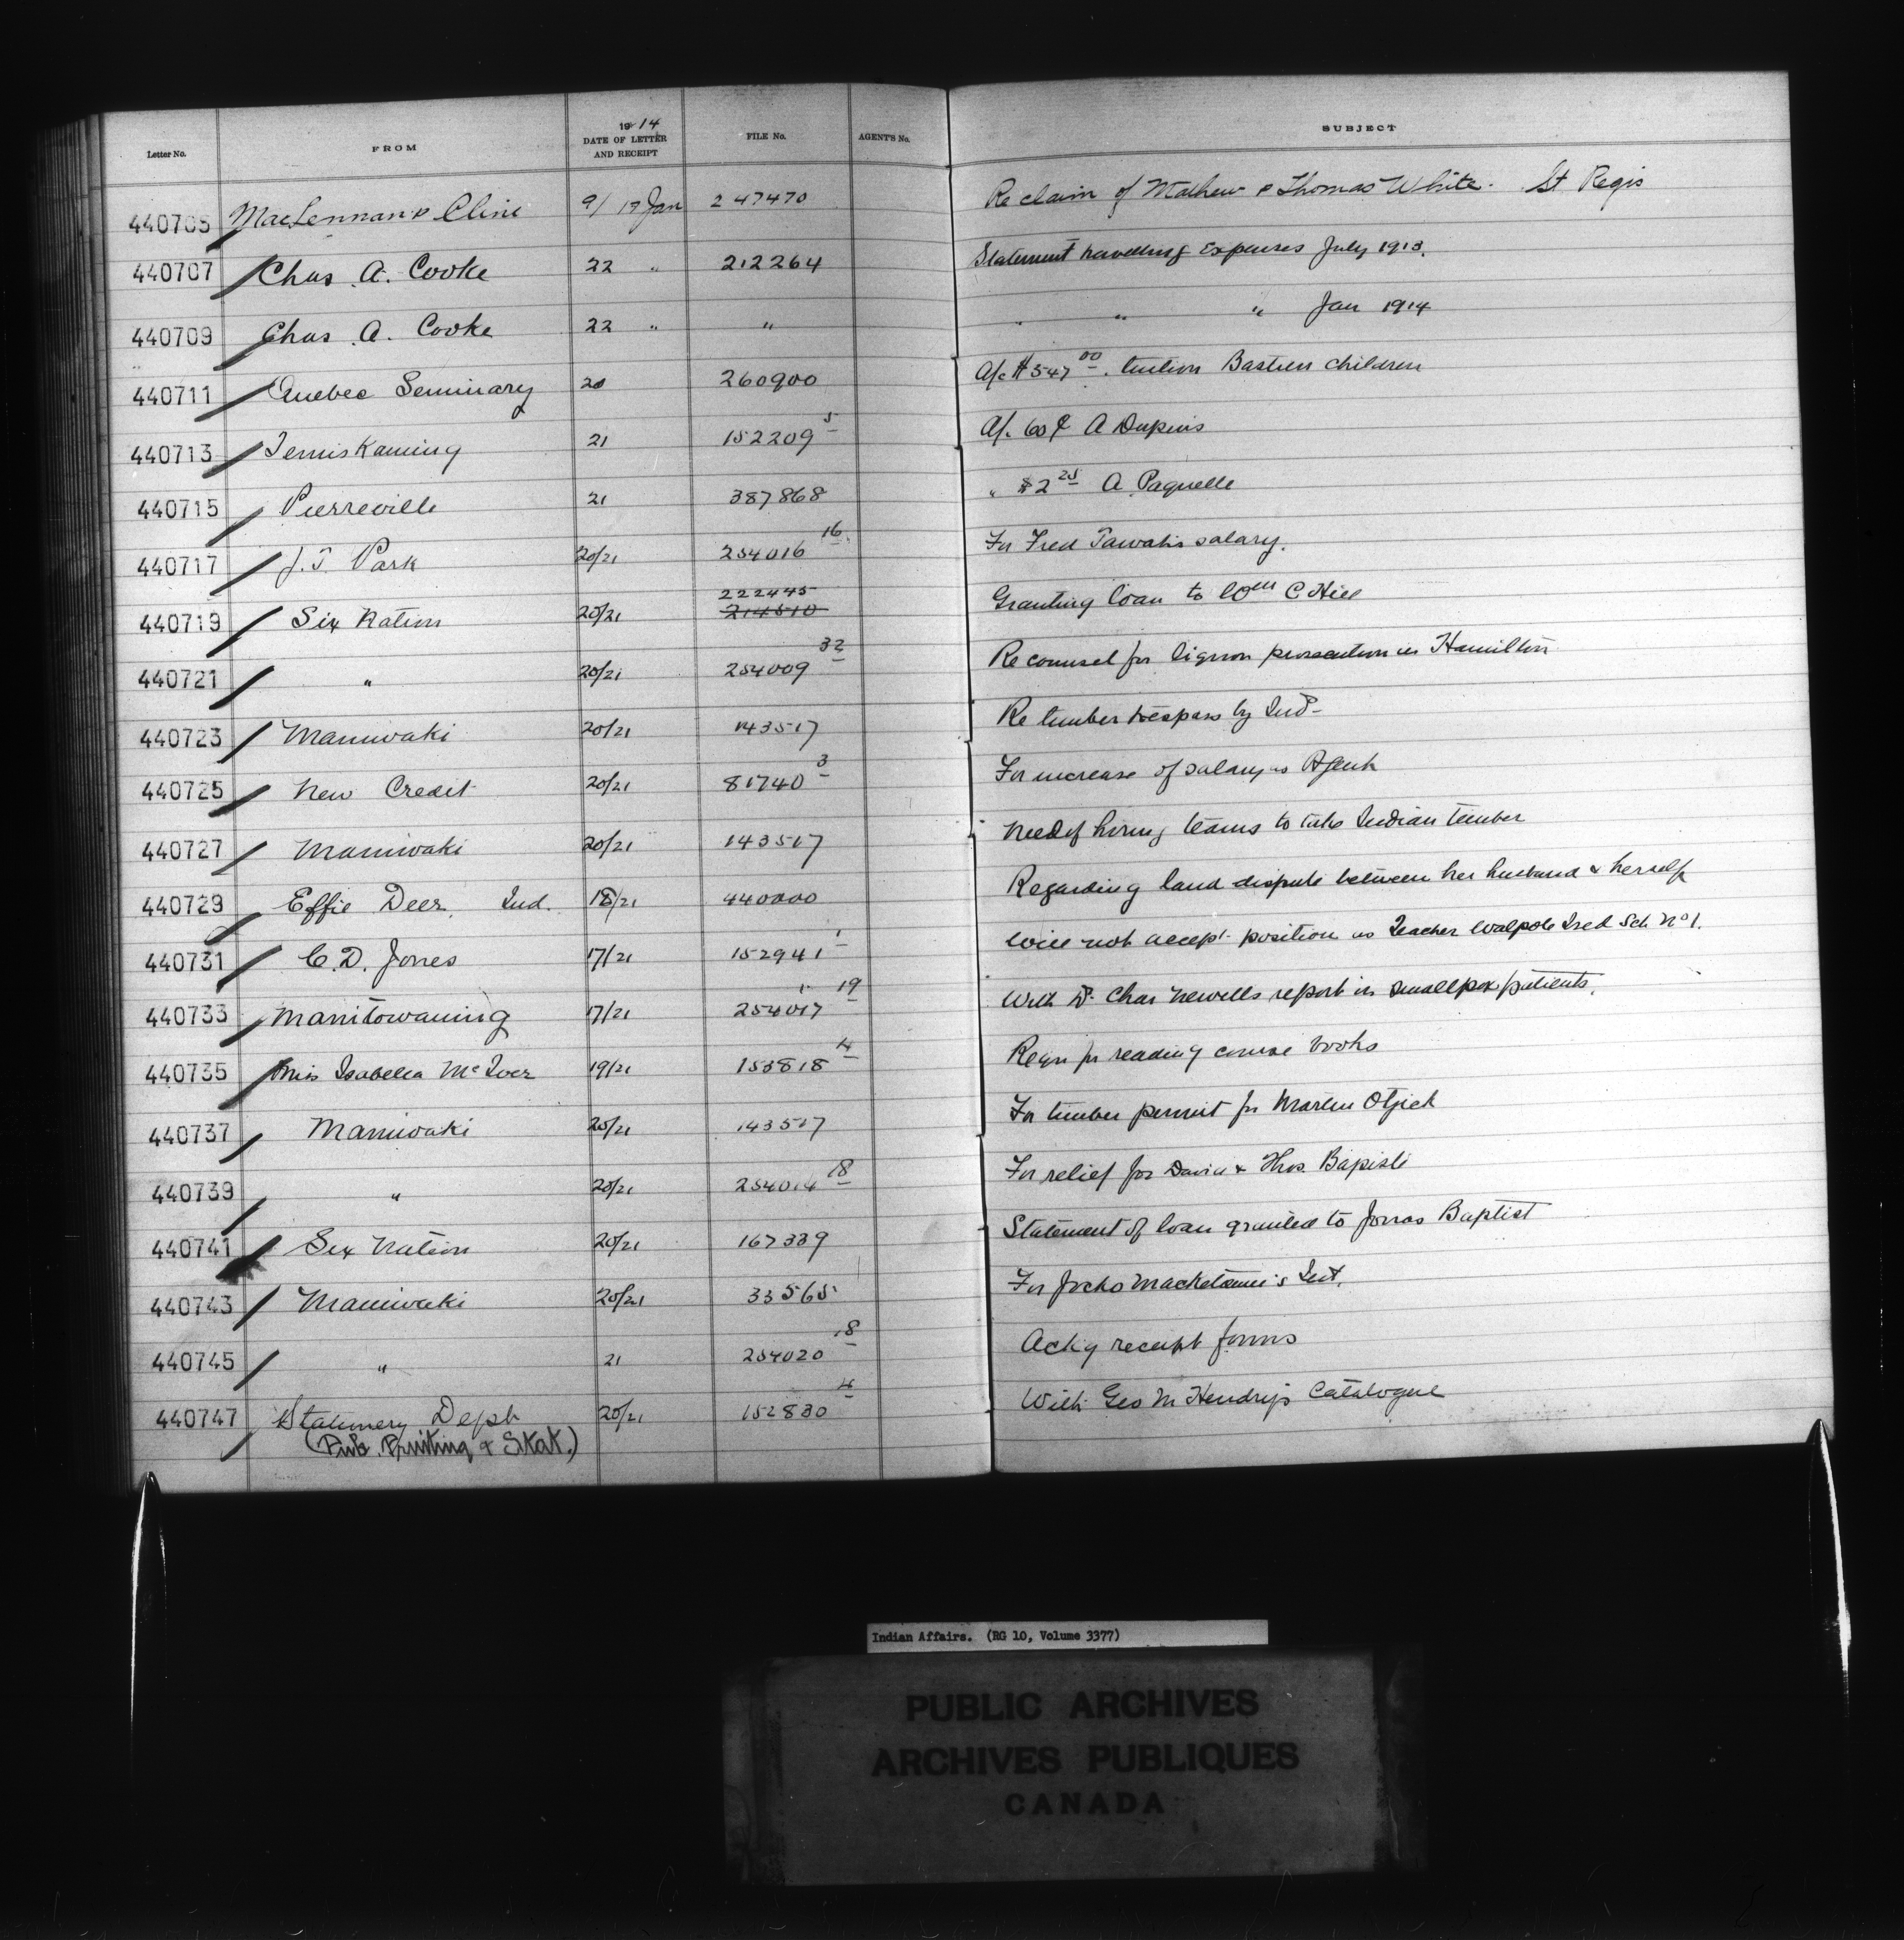 1914
Letter No. FROM DATE OF LETTER AND RECEIPT FILE No. AGENT'S No. SUBJECT
440705 MacLennan & Cline 9/17 Jan 247470 Re claim of Mathew & Thomas White. St Regis
440707 Chas. A. Cooke 22 " 212264 Statement travelling Expenses July 1913.
440709 Chas. A. Cooke 22 " " " " " Jan 1914
440711 Quebec Seminary 20 260900 A/c $547 00 tuition Bastien children
440713 Temiskaming 21 152209 5 A/c 60¢ A Dupuis
440715 Pierreville 21 387868 " $2 25 A Paquette
440717 J. T. Park 20/21 254016 16 For Fred salary.
440719 Six Nation 20/21 222445 214510 Granting loan to Wm C Hill
440721 " 20/21 254009 32 Re counsel for liquor prosecution in Hamilton
440723 Maniwaki 20/21 143517 Re timber trespass by Inds
440725 New Credit 20/21 81740 3 For increase of salary as Agent
440727 Maniwaki 20/21 143517 Need of hiring teams to take Indian timber
440729 Effie Deer, Ind. 18/21 440000 Regarding land dispute between her husband & herself
440731 C. D. Jones 17/21 152941 1 Will not accept position as Teacher Walpole Isld Sch No 1.
440733 Manitowaning 17/21 254017 19 With Dr Chas Newells report in smallpox patients.
440735 Miss Isabella McIver 19/21 153818 4 Reqn for reading course books
440737 Maniwaki 20/21 143517 For timber permit for Martin
440739 " 20/21 254014 18 For relief for David & Thos. Bapiste
440741 Six Nation 20/21 167339 Statement of loan granted to Jonas Baptist
440743 Maniwaki 20/21 33565 For Jocko Int.
440745 " 21 254020 18 Ackg receipt forms
440747 Stationery Dept 20/21 152830 4 With Geo M Hendry's Catalogue
(Pub. Printing & Stat.)
Indian Affairs. (RG 10, Volume 3377)
PUBLIC ARCHIVES
ARCHIVES PUBLIQUES
CANADA